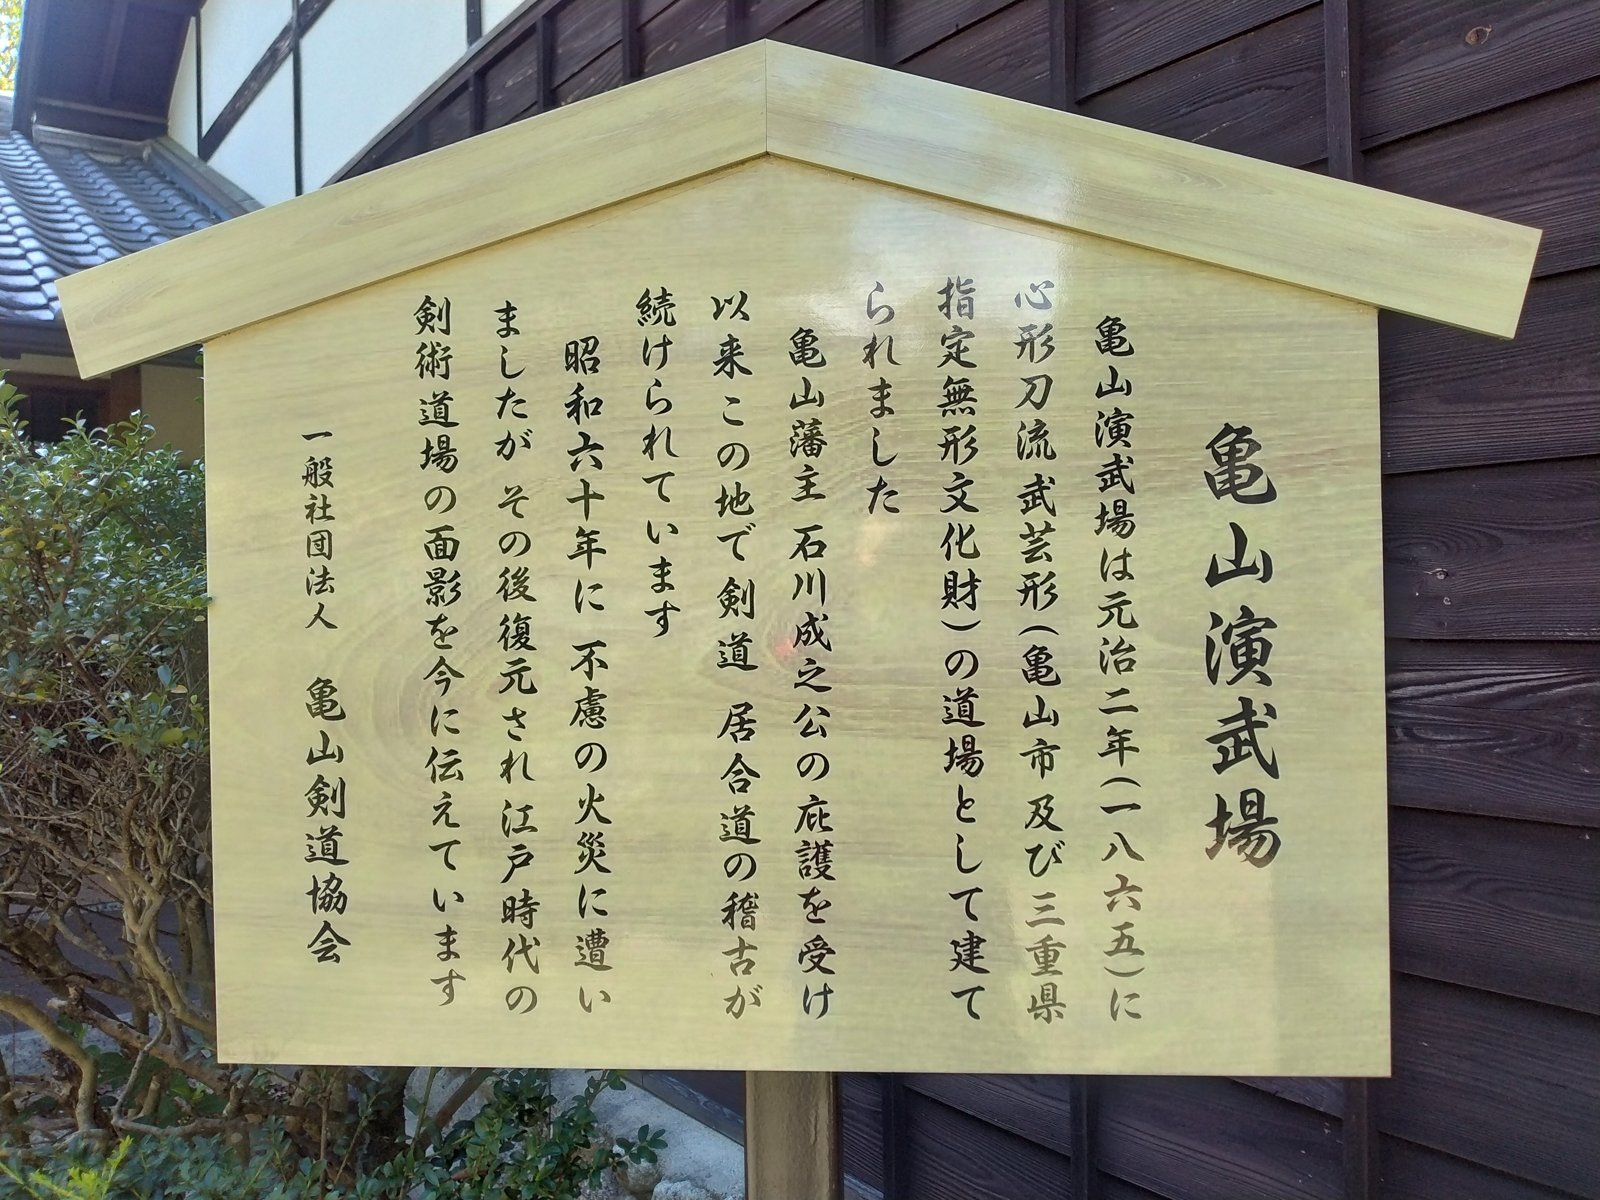 亀山演武場
亀山演武場は元治二年(一八六五)に
心形刀流武芸形(亀山市 及び 三重県
指定無形文化財)の道場として建て
られました
亀山藩主 石川成之公の庇護を受け
以来 この地で 剣道 居合道の稽古が
続けられています
昭和六十年に 不慮の火災に遭い
ましたが その後復元され 江戸時代の
剣術道場の面影を今に伝えています
一般社団法人 亀山剣道協会